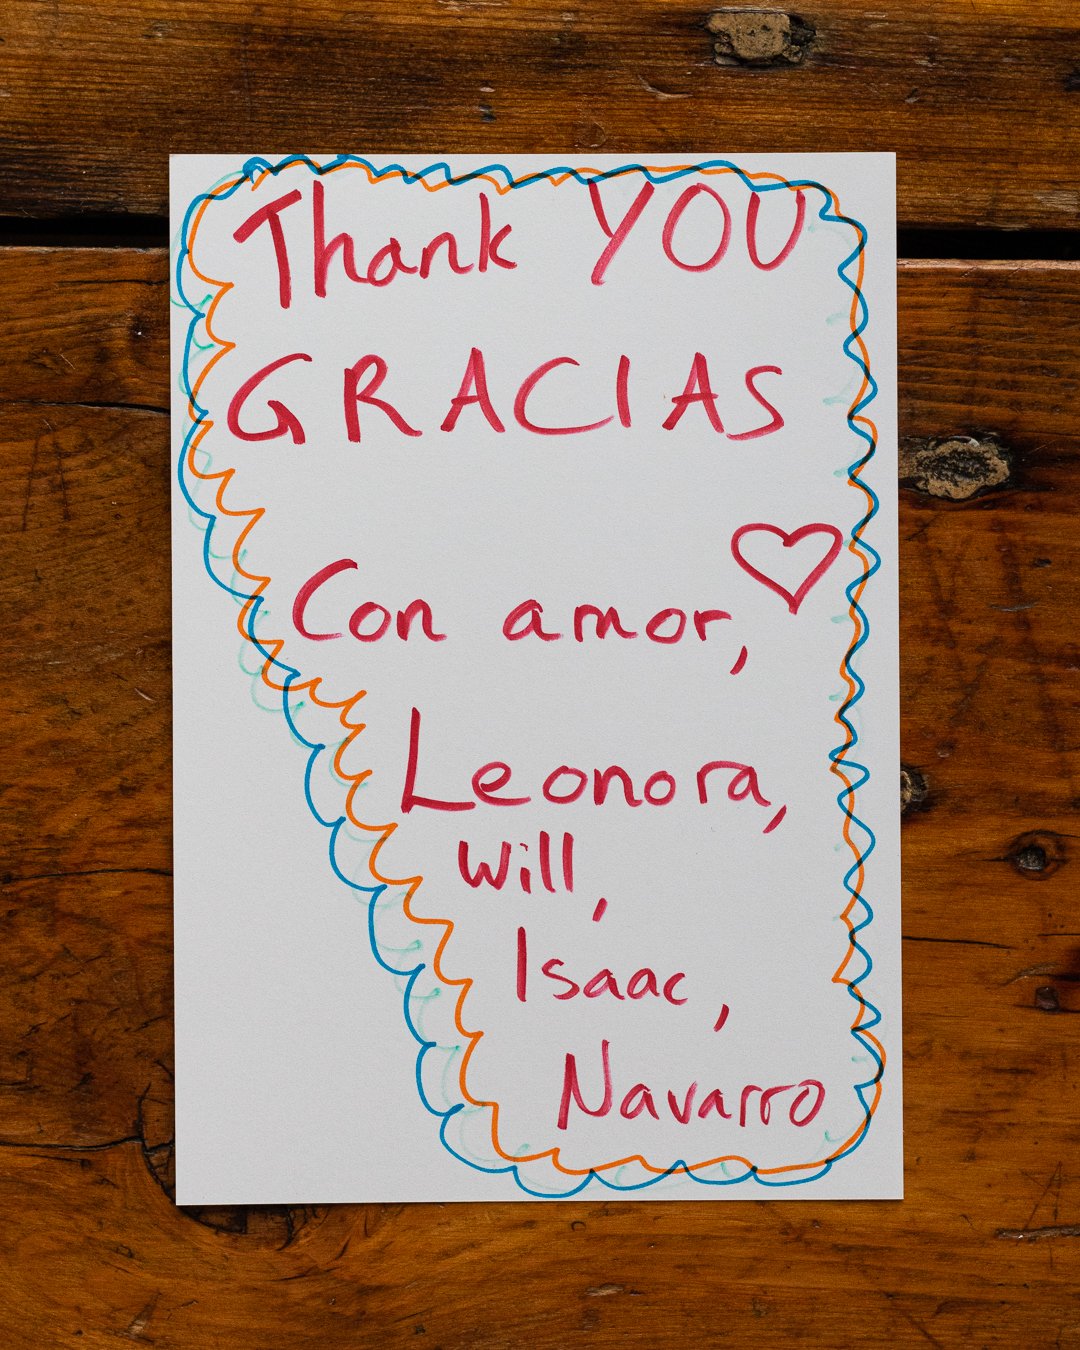 Thank YOU
GRACIAS
Con amor,
Leonora,
Will,
Isaac,
Navarro